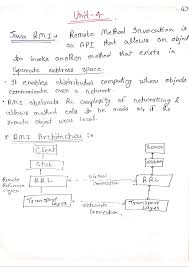 Unit-4
Java RMI - Remote Method Invocation is
an API that allows an object
to invoke another method that exists in
separate address space.
- It enables distributed computing where objects
communicate over a network.
- RMI abstracts the complexity of networking &
allows method calls to be made as if the
remote object were local.
* RMI Architecture :-
Client
Server
Stub
Skeleton
Remote
Reference
Layer
RRL
Virtual
connection
RRL
Transport
Layer
Network
Connection
Transport
Layer